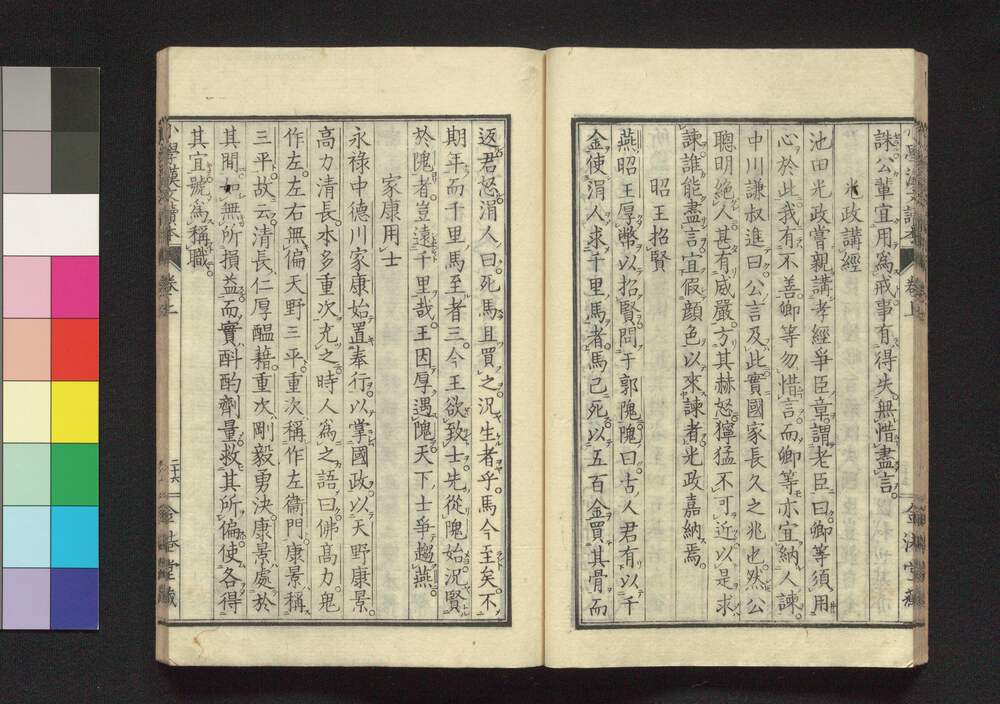 誅公輩宜用爲戒事有得失無惜盡言
光政講經
池田光政嘗親講孝經爭臣章謂老臣曰卿等須用
心於此我有不善卿等勿惜言而卿等亦宜納人諫
中川謙叔進曰公言及此實國家長久之兆也然公
聰明絶人甚有威嚴方其赫怒獰猛不可近以是求
諫誰能盡言宜假顔色以來諫者光政嘉納焉
昭王招賢
燕昭王厚幣以招賢問于郭隗隗曰古人君有以千
金使涓人求千里馬者馬已死以五百金買其骨而
返君怒涓人曰死馬且買之況生者乎馬今至矣不
期年而千里馬至者三今王欲致士先從隗始況賢
於隗者豈遠千里哉王因厚遇隗天下士爭趨燕
家康用士
永祿中德川家康始置奉行以掌國政以天野康景
高力清長本多重次充之時人爲之語曰佛髙力鬼
作左左右無偏天野三平重次稱作左衞門康景稱
三平故云清長仁厚醞藉重次剛毅勇決康景處於
其間如無所損益而實斟酌劑量救其所偏使各得
其宜號爲稱職
小學漢文讀本 卷上 二十六 金港堂藏